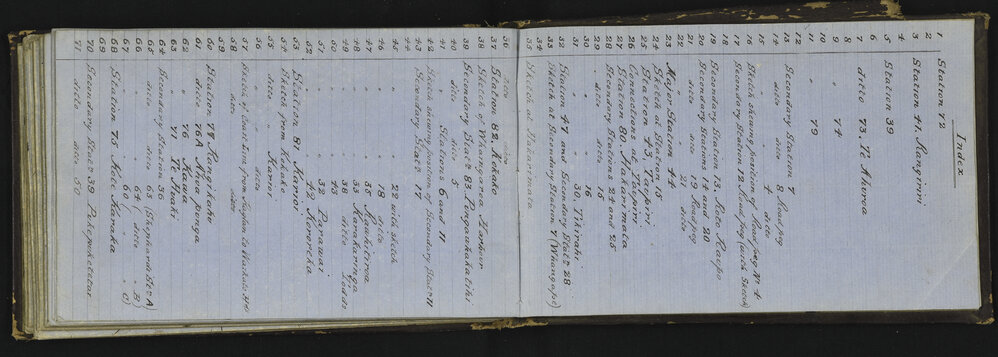 Index
1 Station 72
2
3 Station 41. Rangiriri
4
5 Station 39
6
7 ditto 73. Te Ahoroa
8
9 " 74
10
11 " 79
12
13 Secondary Station 7
14 ditto 8 Road peg
15 ditto 4 ditto
16 Sketch shewing position of Roadpeg No 4
17 Secondary Station 12 Roadpeg (with sketch)
18
19 Secondary Station 13. Koto Raupo
20 Secondary Stations 14 and 20
21 ditto 19 Road peg
22 " 21 ditto
23 Major Station 44
24 Sketch at Station 15
25 Station 43. Taupiri
26 Connections at Taupiri
27 Station 80. Hakarimata
28 Secondary Stations 24 and 25
29 " ditto 15
30 " " 16
31 " " 30.
32 Station 47 and Secondary Statn 28
33 Sketch at Secondary Station 7 (Whangape)
34
35 Sketch at Hakarimata
36 ditto ditto
37 Station 82. Kakako
38 Sketch of Whangaroa Harbour
39 Secondary Statn 83
40 ditto 5
41 " Stations 6 and 11
42 Sketch shewing position of Secondary Statn 11
43 Secondary Statn 17
44
45 " " 22 with sketch
46 " " 18 ditto
47 " " 35
48 " " 33
49 " " 38 ditto Todds
50 " " 43
51 " " 32 Parawai
52 " " 42
53 Station 81. Karioi
54 Sketch from Kakako
55 ditto " Karioi
56
57 Sketch of Coastline from Raglan to Waikato Heads
58 ditto ditto
59
60 Station 77 Rangikahu
61 ditto 76A
62 " 76 Kawa
63 " 71 Te Hoaki
64 Secondary Station 36
65 " ditto 63 (Shepherds Stn A)
66 " " 64 ( " B)
67 " " 60 ( " C)
68 Station 75 Kote Kanaka
69
70 Secondary Statn 39
71 ditto ditto 50